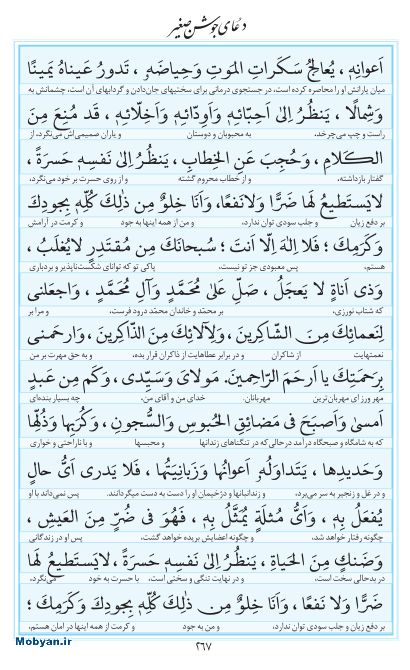 دعای جوشن صغیر
اَعوانِهِ ، یُعالِجُ سَکَراتِ المَوتِ وَحِیاضَهُ ، تَدورُ عَیناهُ یَمینًا
میان یارانش او را محاصره کرده است، در جستجوی درمانی برای سختیهای جان‌دادن و گردابهای آن است، چشمانش به
وَشِمالًا ، یَنظُرُ اِلیٰ اَحِبّائِهِ وَاَوِدّائِهِ وَاَخِلّائِهِ ، قَد مُنِعَ مِنَ
راست و چپ می‌چرخد، به محبوبان و دوستان و یاران صمیمی‌اش می‌نگرد، از
الکَلامِ ، وَحُجِبَ عَنِ الخِطابِ ، یَنظُرُ اِلیٰ نَفسِهِ حَسرَةً ،
گفتار بازداشته، و از خطاب محروم گشته و از روی حسرت بر خود می‌نگرد،
لایَستَطیعُ لَها ضَرًّا وَلانَفعًا، وَاَنَا خِلوٌ مِن ذٰلِکَ کُلِّهِ بِجودِکَ
بر دفع زیان و جلب سودی توان ندارد، و من از همه اینها به جود و کرمت در آرامش
وَکَرَمِکَ ؛ فَلا اِلٰهَ اِلّا اَنتَ ؛ سُبحانَکَ مِن مُقتَدِرٍ لایُغلَبُ ،
هستم، پس معبودی جز تو نیست، پاکی تو که توانای شکست‌ناپذیر و بردباری
وَذی اَناةٍ لا یَعجَلُ ، صَلِّ عَلیٰ مُحَمَّدٍ وَآلِ مُحَمَّدٍ ، وَاجعَلنی
که شتاب نورزی، بر محمّد و خاندان محمّد درود فرست، و مرا بر
لِنَعمائِکَ مِنَ الشّاکِرینَ ، وَلِآلائِکَ مِنَ الذّاکِرینَ ، وَارحَمنی
نعمتهایت از شاکران و در برابر عطاهایت از ذاکران قرار بده، و به حق مهرت بر من
بِرَحمَتِکَ یا اَرحَمَ الرّاحِمینَ. مَولایَ وَسَیِّدی ، وَکَم مِن عَبدٍ
مهر ورز ای مهربان‌ترین مهربانان. خدای من و آقای من، چه بسیار بنده‌ای
اَمسیٰ وَاَصبَحَ فی مَضائِقِ الحُبوسِ وَالسُّجونِ ، وَکُرَبِها وَذُلِّها
که به شامگاه و صبحگاه درآمد درحالی که در تنگناهای زندانها و محبسها و با ناراحتی و خواری
وَحَدیدِها ، یَتَداوَلُهُ اَعوانُها وَزَبانِیَتُها ، فَلا یَدری اَیُّ حالٍ
و در غل و زنجیر به سر می‌برد، و زندانبانها و دژخیمان او را دست به دست میگردانند. پس نمی‌داند با او
یُفعَلُ بِهِ ، وَاَیُّ مُثلَةٍ یُمَثَّلُ بِهِ ، فَهُوَ فی ضُرٍّ مِنَ العَیشِ ،
چگونه رفتار خواهد شد، و چگونه اعضایش بریده خواهد گشت، پس او در زندگانی
وَضَنکٍ مِنَ الحَیاةِ ، یَنظُرُ اِلیٰ نَفسِهِ حَسرَةً ، لایَستَطیعُ لَها
در بدحالی سخت است، و در نهایت تنگی و سختی است، با حسرت به خود می‌نگرد،
ضَرًّا وَلا نَفعًا ، وَاَنَا خِلوٌ مِن ذٰلِکَ کُلِّهِ بِجودِکَ وَکَرَمِکَ ؛
بر دفع زیان و جلب سودی توان ندارد، و من به جود و کرمت از همه اینها در امان هستم،
٢٦٧
Mobyan.ir